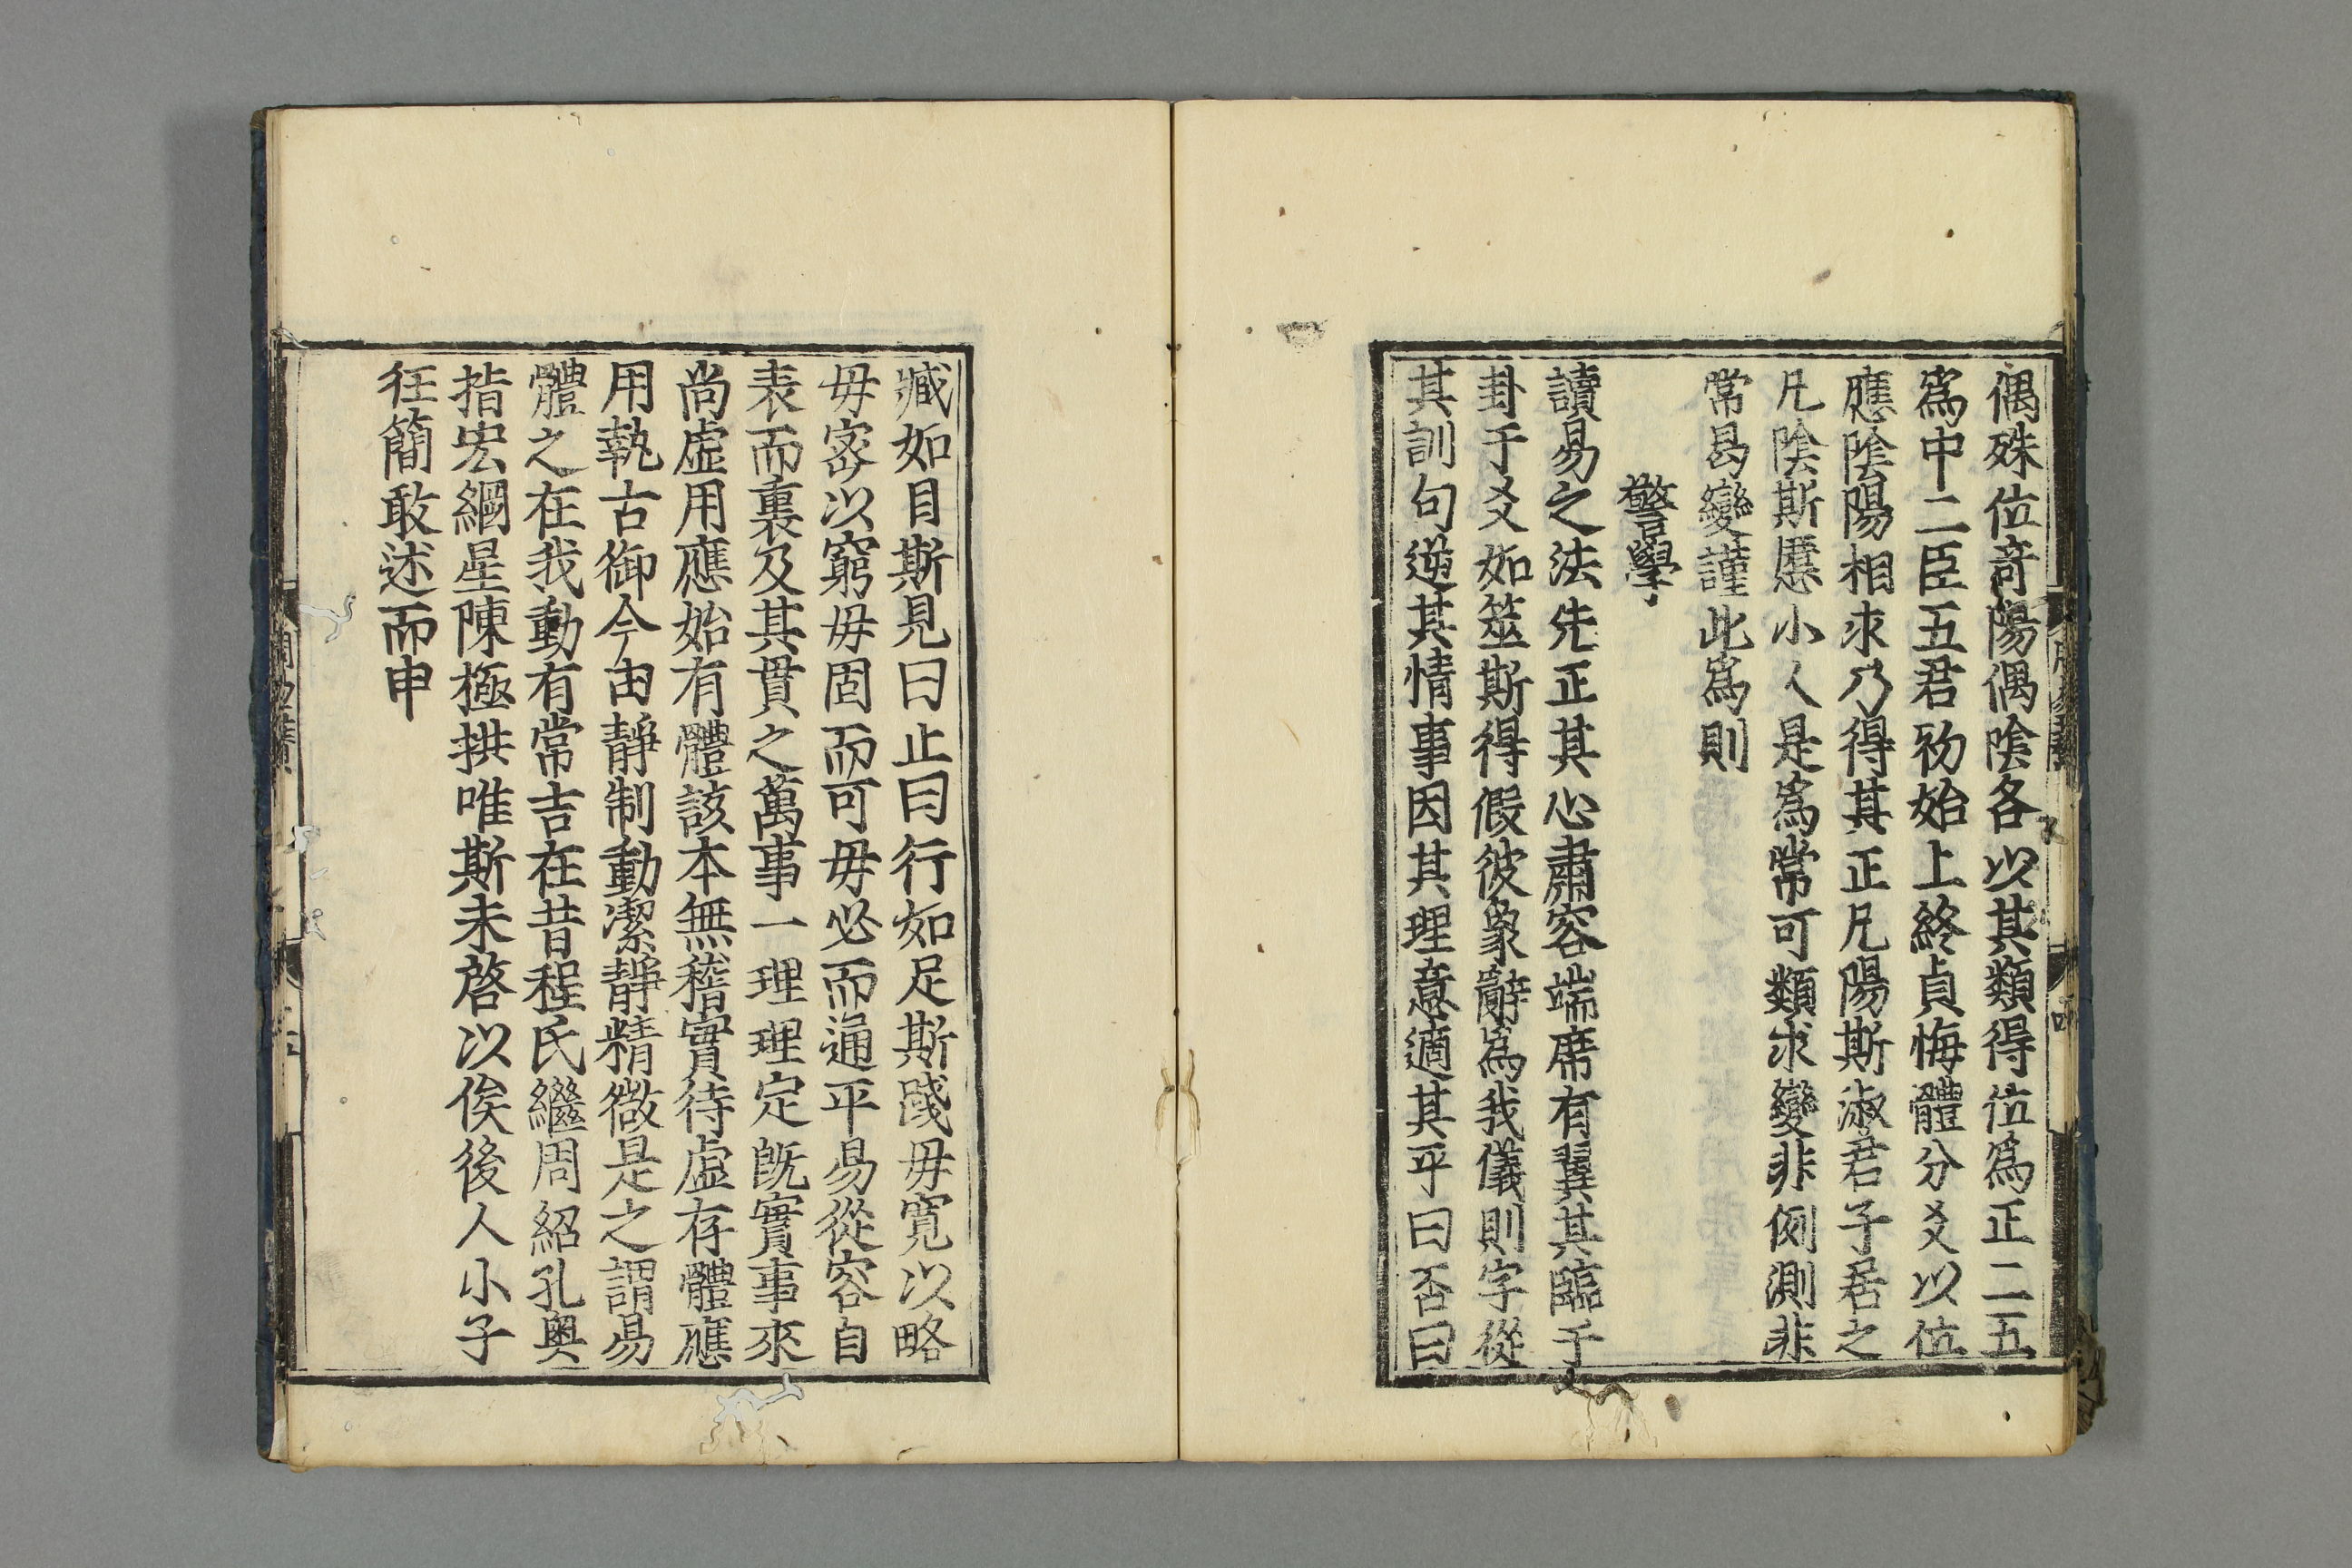 偶殊位竒陽偶隂各以其類得位爲正二五
爲中二臣五君初始上終貞悔體分爻以位
應隂陽相求乃得其正凡陽斯淑君子居之
凡隂斯慝小人是爲常可類求變非例測非
常曷變謹此爲則
警學
讀易之法先正其心肅容端席有翼其臨于
卦于爻如筮斯得假彼象辭爲我儀則字從
其訓句逆其情事因其理意適其平曰否曰
臧如目斯見曰止曰行如足斯踐毋寛以略
毋宻以窮毋固而可毋必而通平易從容自
表而裏及其貫之萬事一理理定旣實事來
尚虚用應始有體該本無稽實待虚存體應
用執古御今由靜制動潔靜精微是之謂易
體之在我動有常吉在昔程氏繼周紹孔奥
指宏綱星陳極拱唯斯未啓以俟後人小子
狂簡敢述而申